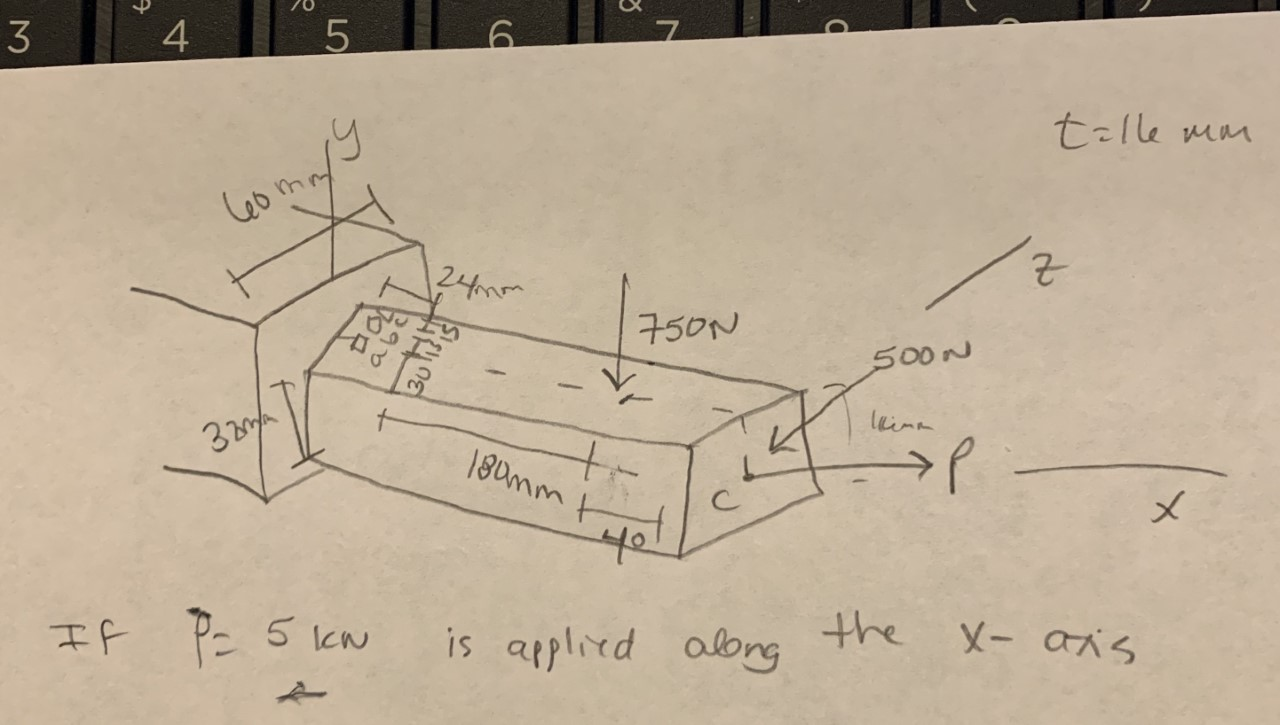 $ % & ( )
3 4 5 6 7 8
t=16 mm
y
60mm
24mm
750N
z
a b c
15
15
30
500N
180mm
P
C
40
x
If P= 5 kN is applied along the x- axis